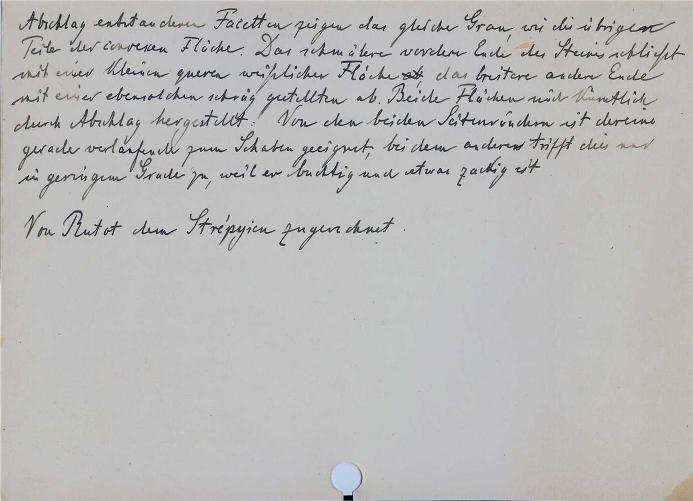 Abschlag entstandenen Facetten zeigen das gleiche Grau, wie die übrigen
Teile der convexen Fläche. Das schmälere vordere Ende des Steines schließt
mit einer kleinen queren weißlichen Fläche ab, das breitere andere Ende
mit einer ebensolchen schräg gestellten ab. Beide Flächen sind künstlich
durch Abschlag hergestellt. Von den beiden Seitenrändern ist der eine
gerade verlaufende zum Schaben geeignet, bei dem anderen trifft dies nur
in geringem Grade zu, weil er buchtig und etwas zackig ist
Von Rutot dem Strépyien zugerechnet.